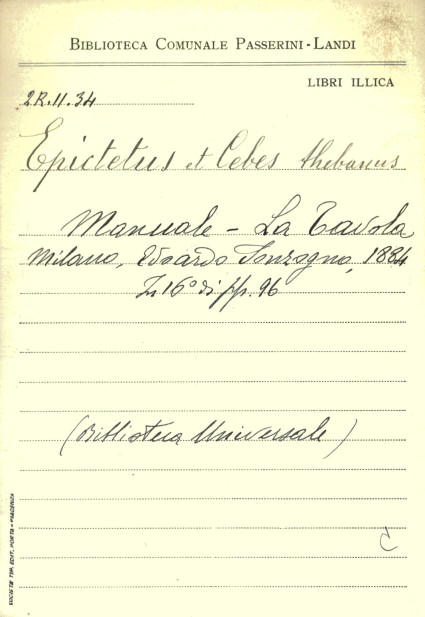 BIBLIOTECA COMUNALE PASSERINI-LANDI
LIBRI ILLICA
2R.11.34
Epictetus et Cebes thebanus
Manuale - La Tavola
Milano, Edoardo Sonzogno, 1884
In 16° di pp. 96
(Biblioteca Universale)
C
SOCIETÀ TIP. EDIT. PORTA - PIACENZA